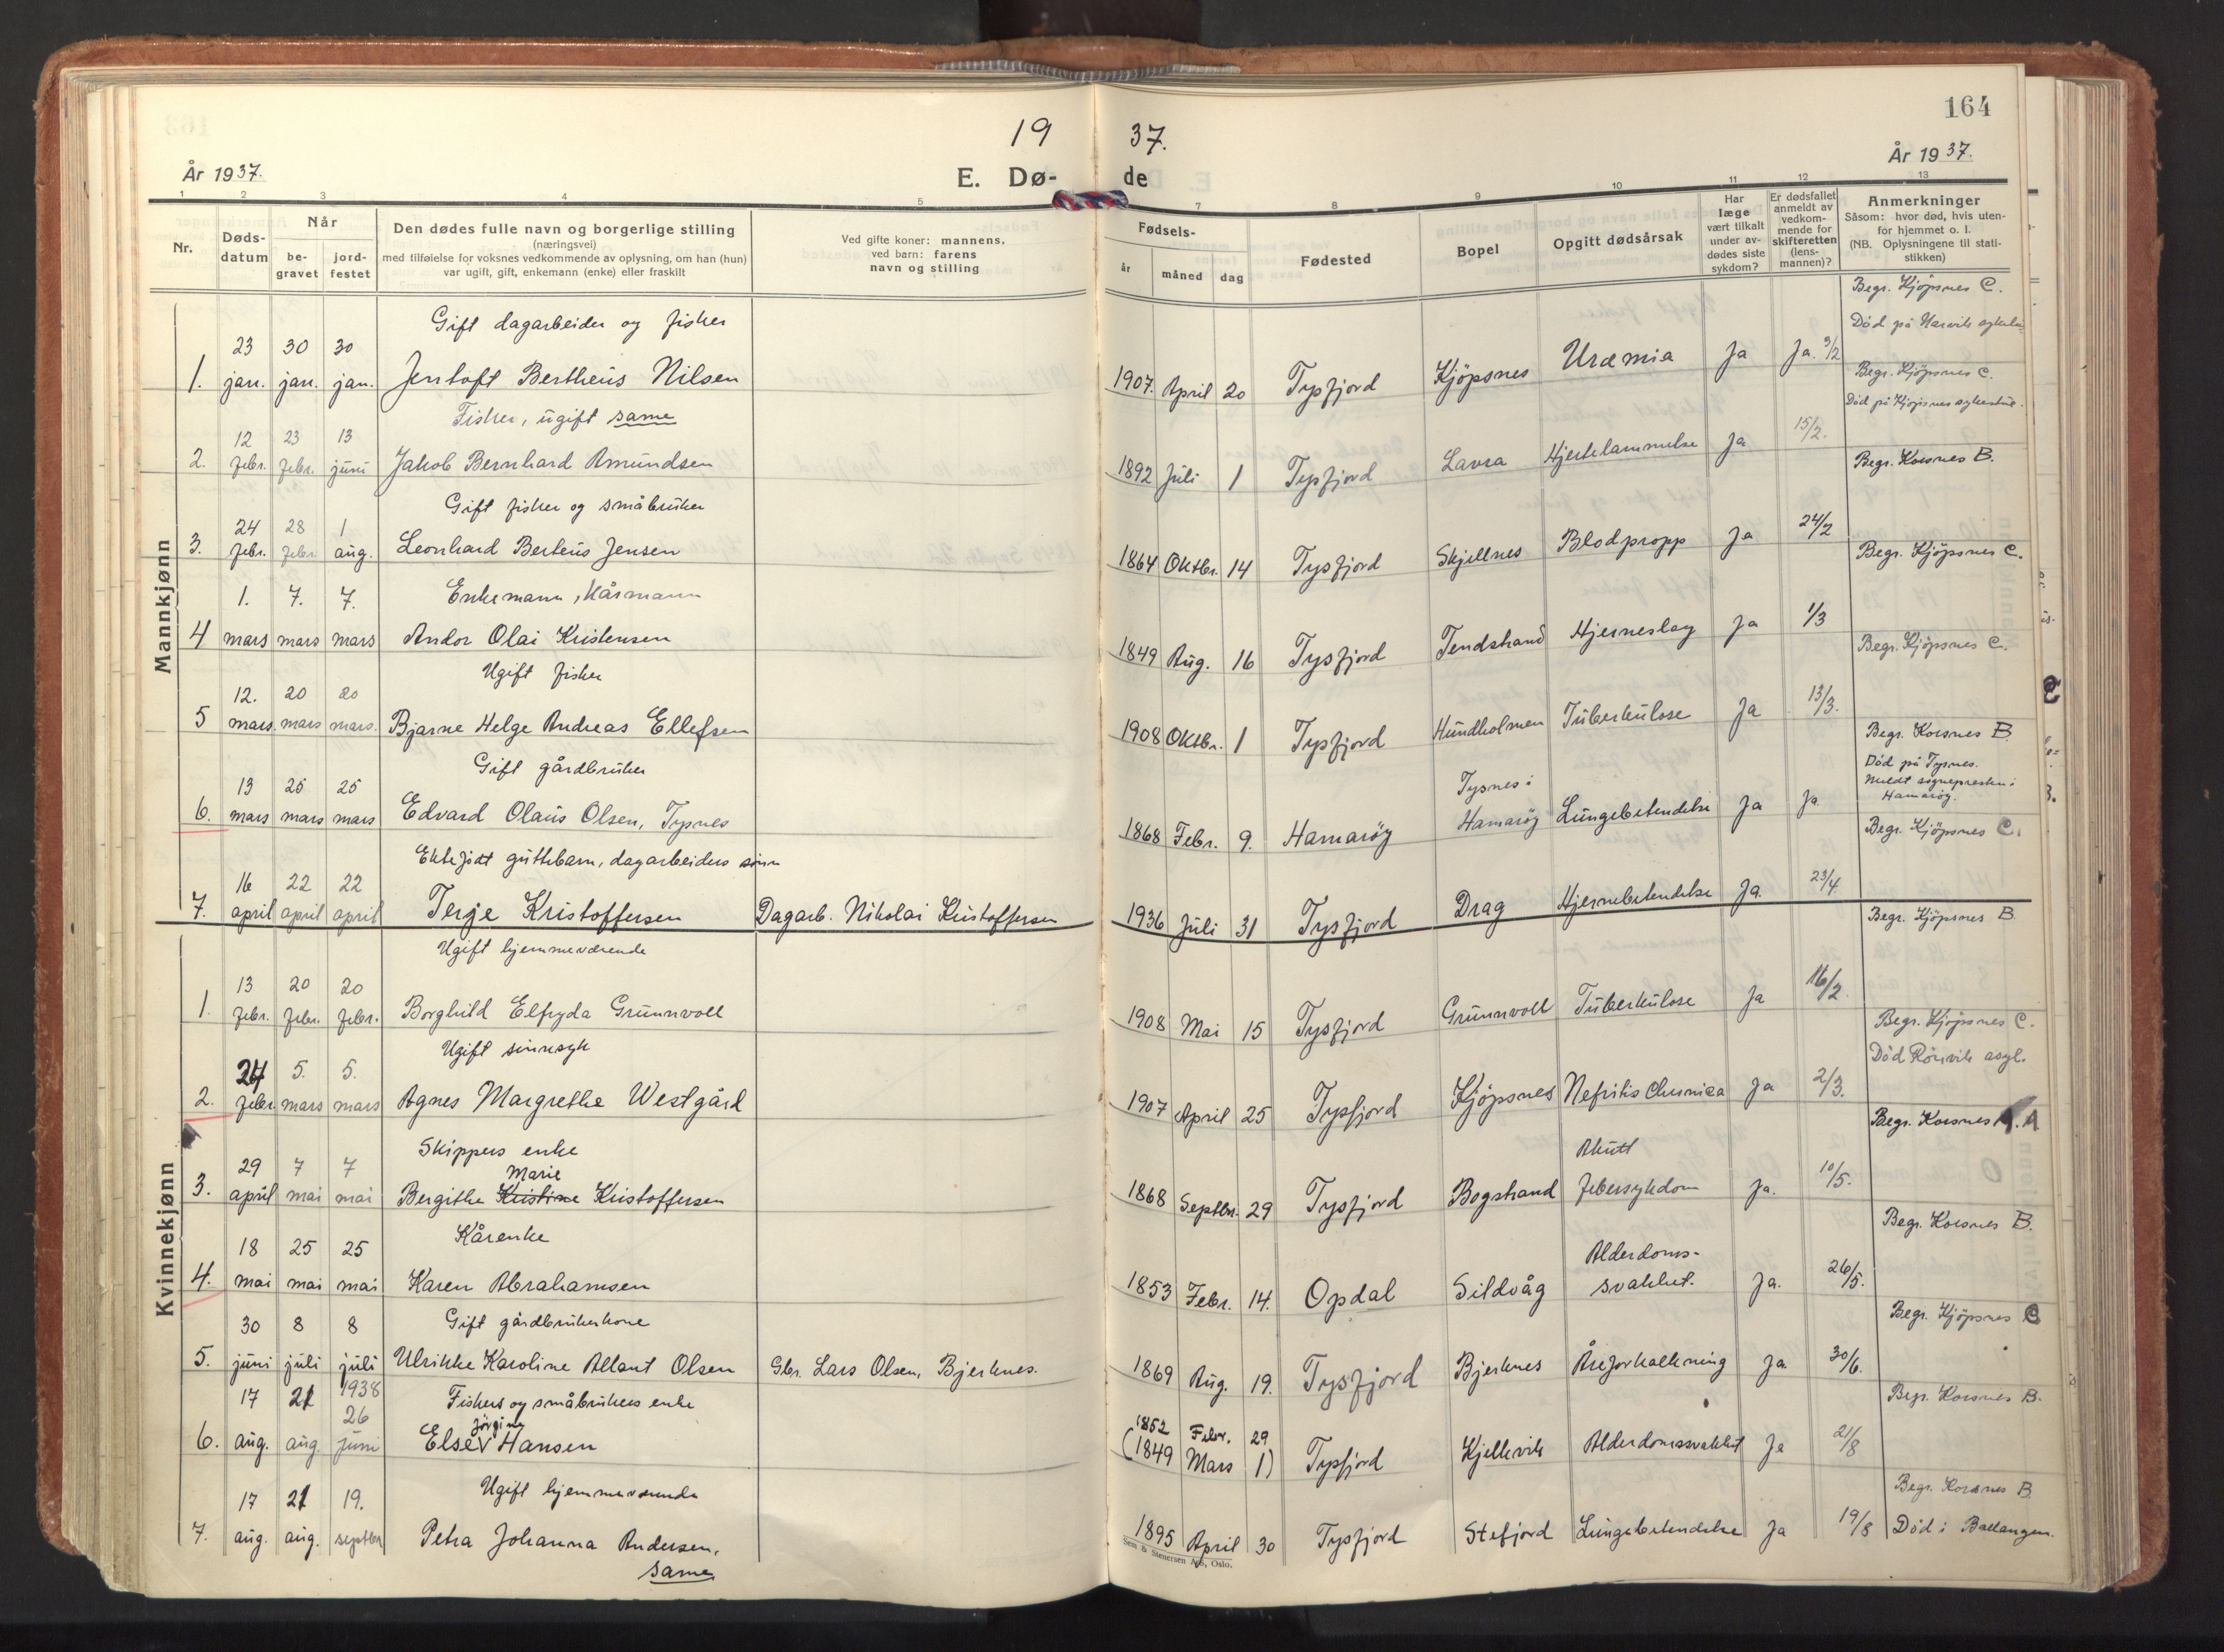 164
19 37.
År 1937. E. Dø- de År 1937.
1 2 3 4 5 7 8 9 10 11 12 13
Nr. Døds-datum Når be-gravet jord-festet
Den dødes fulle navn og borgerlige stilling
(næringsvei)
med tilføielse for voksnes vedkommende av oplysning, om han (hun)
var ugift, gift, enkemann (enke) eller fraskilt
Ved gifte koner: mannens,
ved barn: farens
navn og stilling
Fødsels-
år måned dag
Fødested
Bopel
Opgitt dødsårsak
Har læge vært tilkalt under av-dødes siste sykdom?
Er dødsfallet anmeldt av vedkom-mende for skifteretten (lens-mannen)?
Anmerkninger
Såsom: hvor død, hvis uten-
for hjemmet o. l.
(NB. Oplysningene til stati-
stikken)
Mannkjønn
Gift dagarbeider og fisker Begr. Kjöpsnes C.
23 30 30 Død på Narvik
1. jan. jan. jan. Jentoft Bertheus Nilsen 1907. April 20 Tysfjord Kjöpsnes Uræmia Ja Ja. 3/2
Fisker, ugift same Begr. Kjöpsnes C.
12 23 13 Död på Kjöpsnes sykestue.
2. febr. febr. juni Jakob Bernhard Amundsen 1892 Juli 1 Tysfjord Lavra Hjertelammelse Ja 15/2.
Gift fisker og småbruker Begr. Korsnes B.
24 28 1
3. febr. febr. aug. Leonhard Berteus Jensen 1864 Oktbr. 14 Tysfjord Skjellnes Blodpropp Ja 24/2
Enkemann, Kårmann Begr. Kjöpsnes C.
1. 7. 7.
4 mars mars mars Andor Olai Kristensen 1849 Aug. 16 Tysfjord Tendstrand Hjerneslag Ja 1/3
Ugift fisker Begr. Kjöpsnes C.
12. 20 20
5 mars. mars mars. Bjarne Helge Andreas Ellefsen 1908 Oktbr. 1 Tysfjord Hundholmen Tuberkulose Ja 13/3.
Gift gårdbruker Begr. Korsnes B.
13 25 25 Död på Tysnes.
meldt sogneprest en i
Hamaröy.
6. mars mars mars Edvard Olaus Olsen, Tysnes 1868 Febr. 9. Hamaröy Tysnes i Hamaröy Lungebetendelse Ja Ja
Ektefödt guttebarn, dagarbeiders sönn Begr. Kjöpsnes C.
16 22 22
7. april april april Terje Kristoffersen Dagarb. Nikolai Kristoffersen 1936 Juli 31 Tysfjord Drag Hjernebetendelse Ja. 23/4.
Kvinnekjønn
Ugift hjemmeværende Begr. Kjöpsnes B
13 20 20
1. febr. febr. febr. Borghild Elfryda Grunnvoll 1908 Mai 15 Tysfjord Grunnvoll Tuberkulose Ja 16/2.
Ugift sinnsyk Begr. Kjöpsnes C.
24 5. 5. Död Rönvik asyl.
2. febr. mars mars Agnes Margrethe Westgård 1907 April 25 Tysfjord Kjöpsnes Nefritis Chronica Ja 2/3.
Skippers enke Begr. Korsnes A
29 7 7 Marie
3. april mai mai Bergithe Kristine Kristoffersen 1868 Septbr. 29 Tysfjord Bogstrand Akutt febersykdom Ja. 10/5.
Kårenke Begr. Korsnes B.
18 25 25
4. mai mai mai Karen Abrahamsen 1853 Febr. 14. Opdal Sildvåg Alderdoms-svakhet. Ja. 26/5.
Gift gårdbrukerkone Begr. Kjöpsnes C
30 8 8
5. juni juli juli Ulrikke Karoline Allant Olsen Gbr. Lars Olsen, Bjerknes. 1869 Aug. 19. Tysfjord Bjerknes Åreforkalkning Ja 30/6.
Fiskers og småbrukers enke Begr. Korsnes B.
17 21 1938 26 Jörgine 1852 Febr. 29
6. aug. aug. juni Else V Hansen (1849 Mars 1) Tysfjord Kjellevik Alderdomssvakhet Ja 21/8
Ugift hjemmeværende Begr. Korsnes B
17 21 19.
7. aug. aug. septbr Petra Johanna Andersen, 1895 April 30 Tysfjord Stefjord Lungebetendelse Ja 19/8 Död i Ballangen.
same
Sem & Stenersen A/S, Oslo.